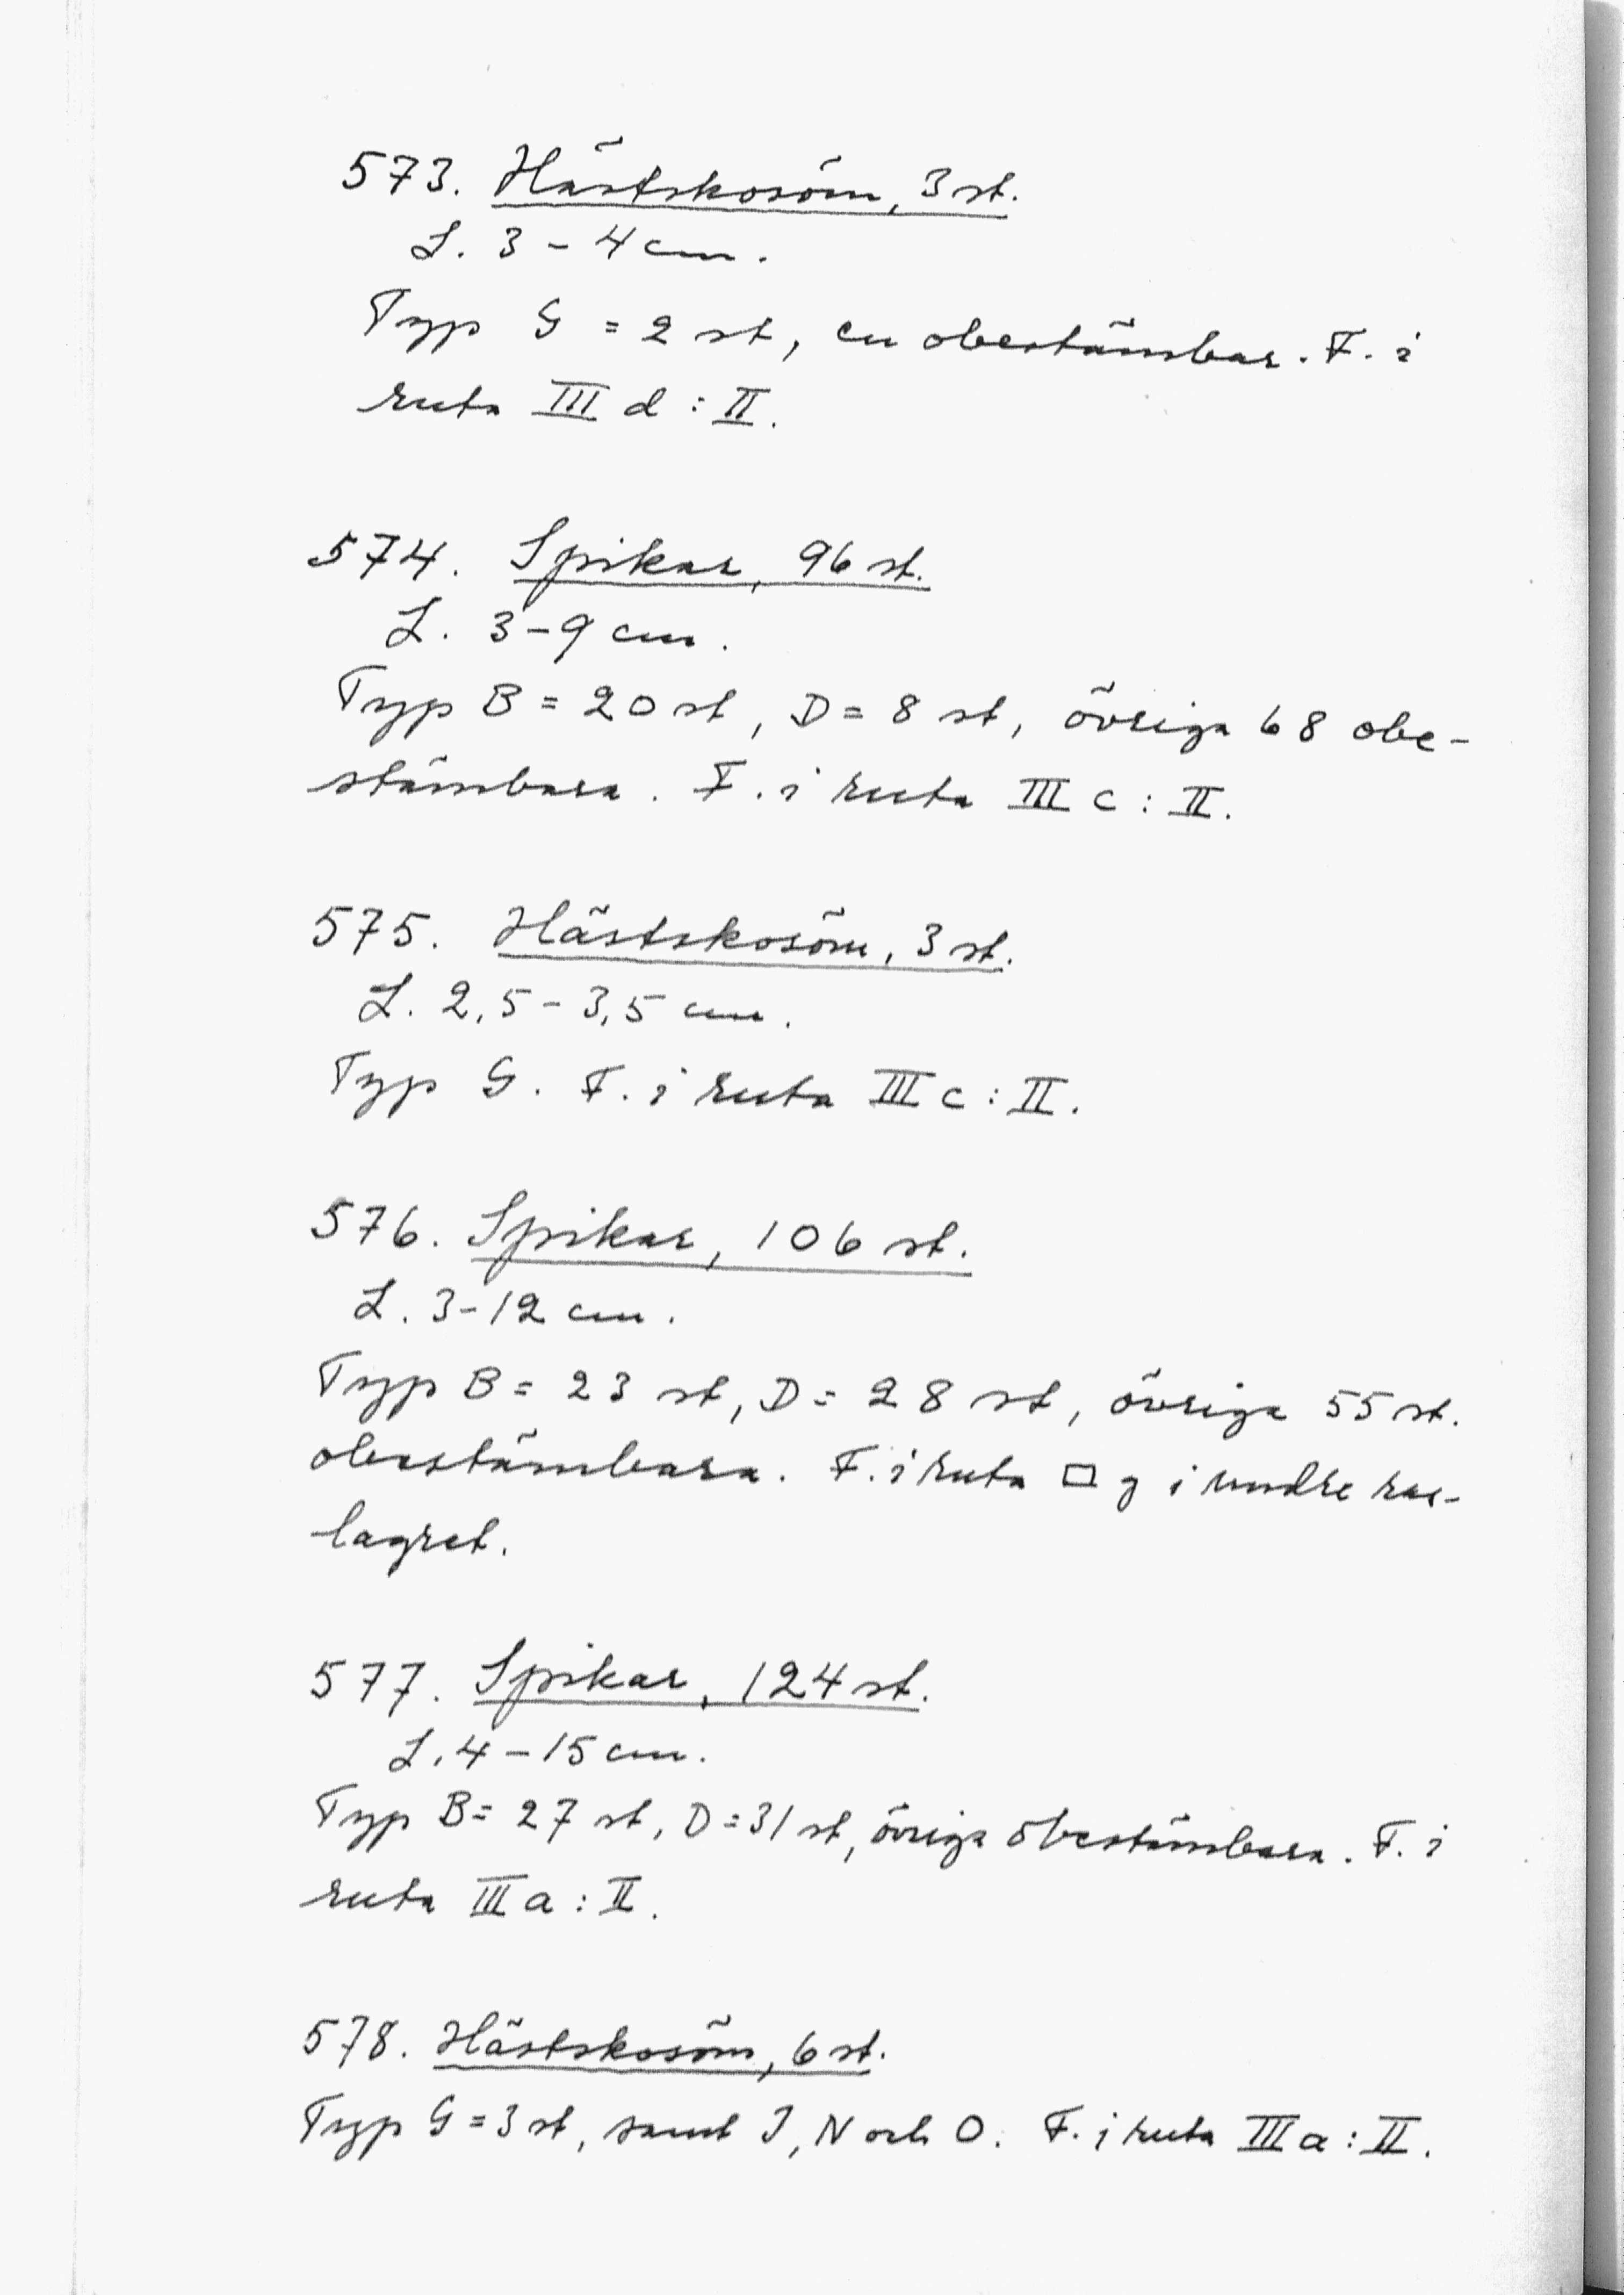 573. Hästskosöm, 3 st.
L. 3 - 4 cm.
Typ G = 2 st, en obestämbar. F. i
ruta III d : II.
574. Spikar, 96 st.
L. 3 - 9 cm.
Typ B = 20 st, D = 8 st, övriga 68 obe-
stämbara. F. i ruta III c : II.
575. Hästskosöm, 3 st.
L. 2,5 - 3,5 cm.
Typ G. F. i ruta III c : II.
576. Spikar, 106 st.
L. 3 - 12 cm.
Typ B = 23 st, D = 28 st, övriga 55 st.
obestämbara. F. i ruta □ g i undre
lagret.
577. Spikar, 124 st.
L. 4 - 15 cm.
Typ B = 27 st, D = 31 st, övriga obestämbara. F. i
ruta III a : II.
578. Hästskosöm, 6 st.
Typ G = 3 st, samt J, N och O. F. i ruta III a : II.